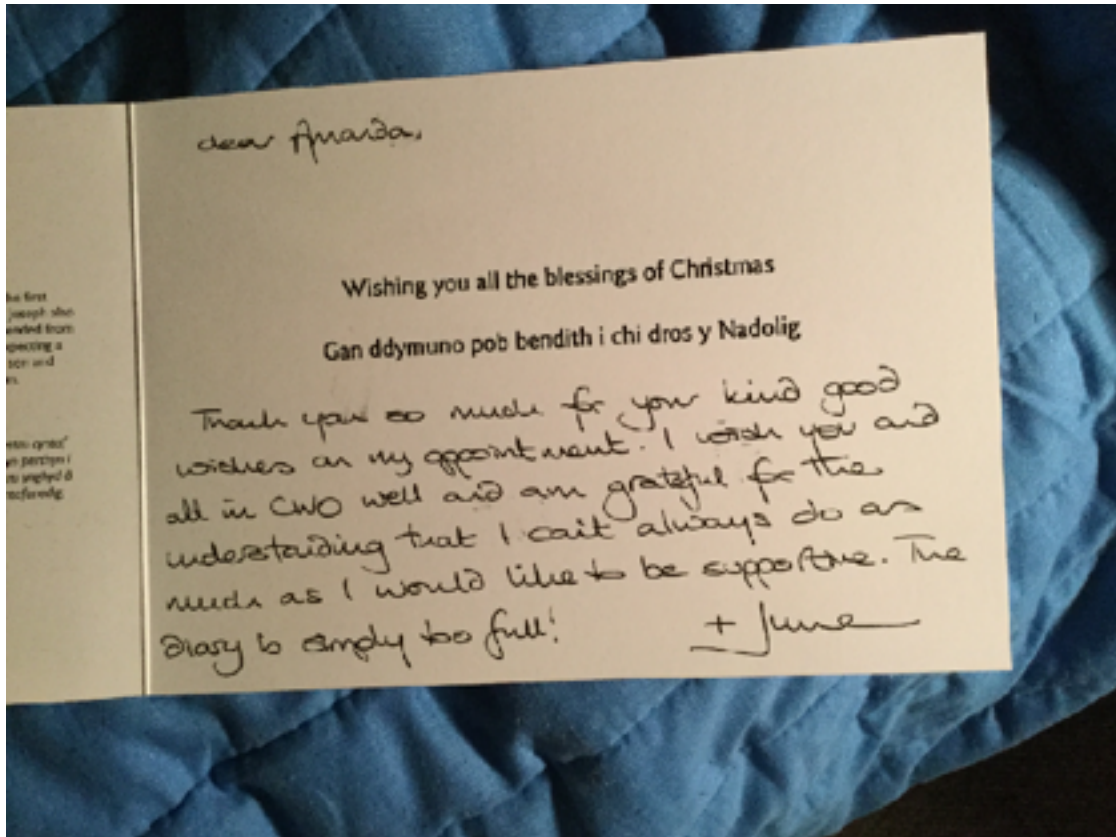 he first
joseph also
ended from
xpecting a
son and
dear Amanda,
Wishing you all the blessings of Christmas
Gan ddymuno pob bendith i chi dros y Nadolig
Thank you so much for your kind good
wishes on my appointment. I wish you and
all in CWO well and am grateful for the
understanding that I can't always do as
much as I would like to be supportive. The
diary is simply too full!
+ June